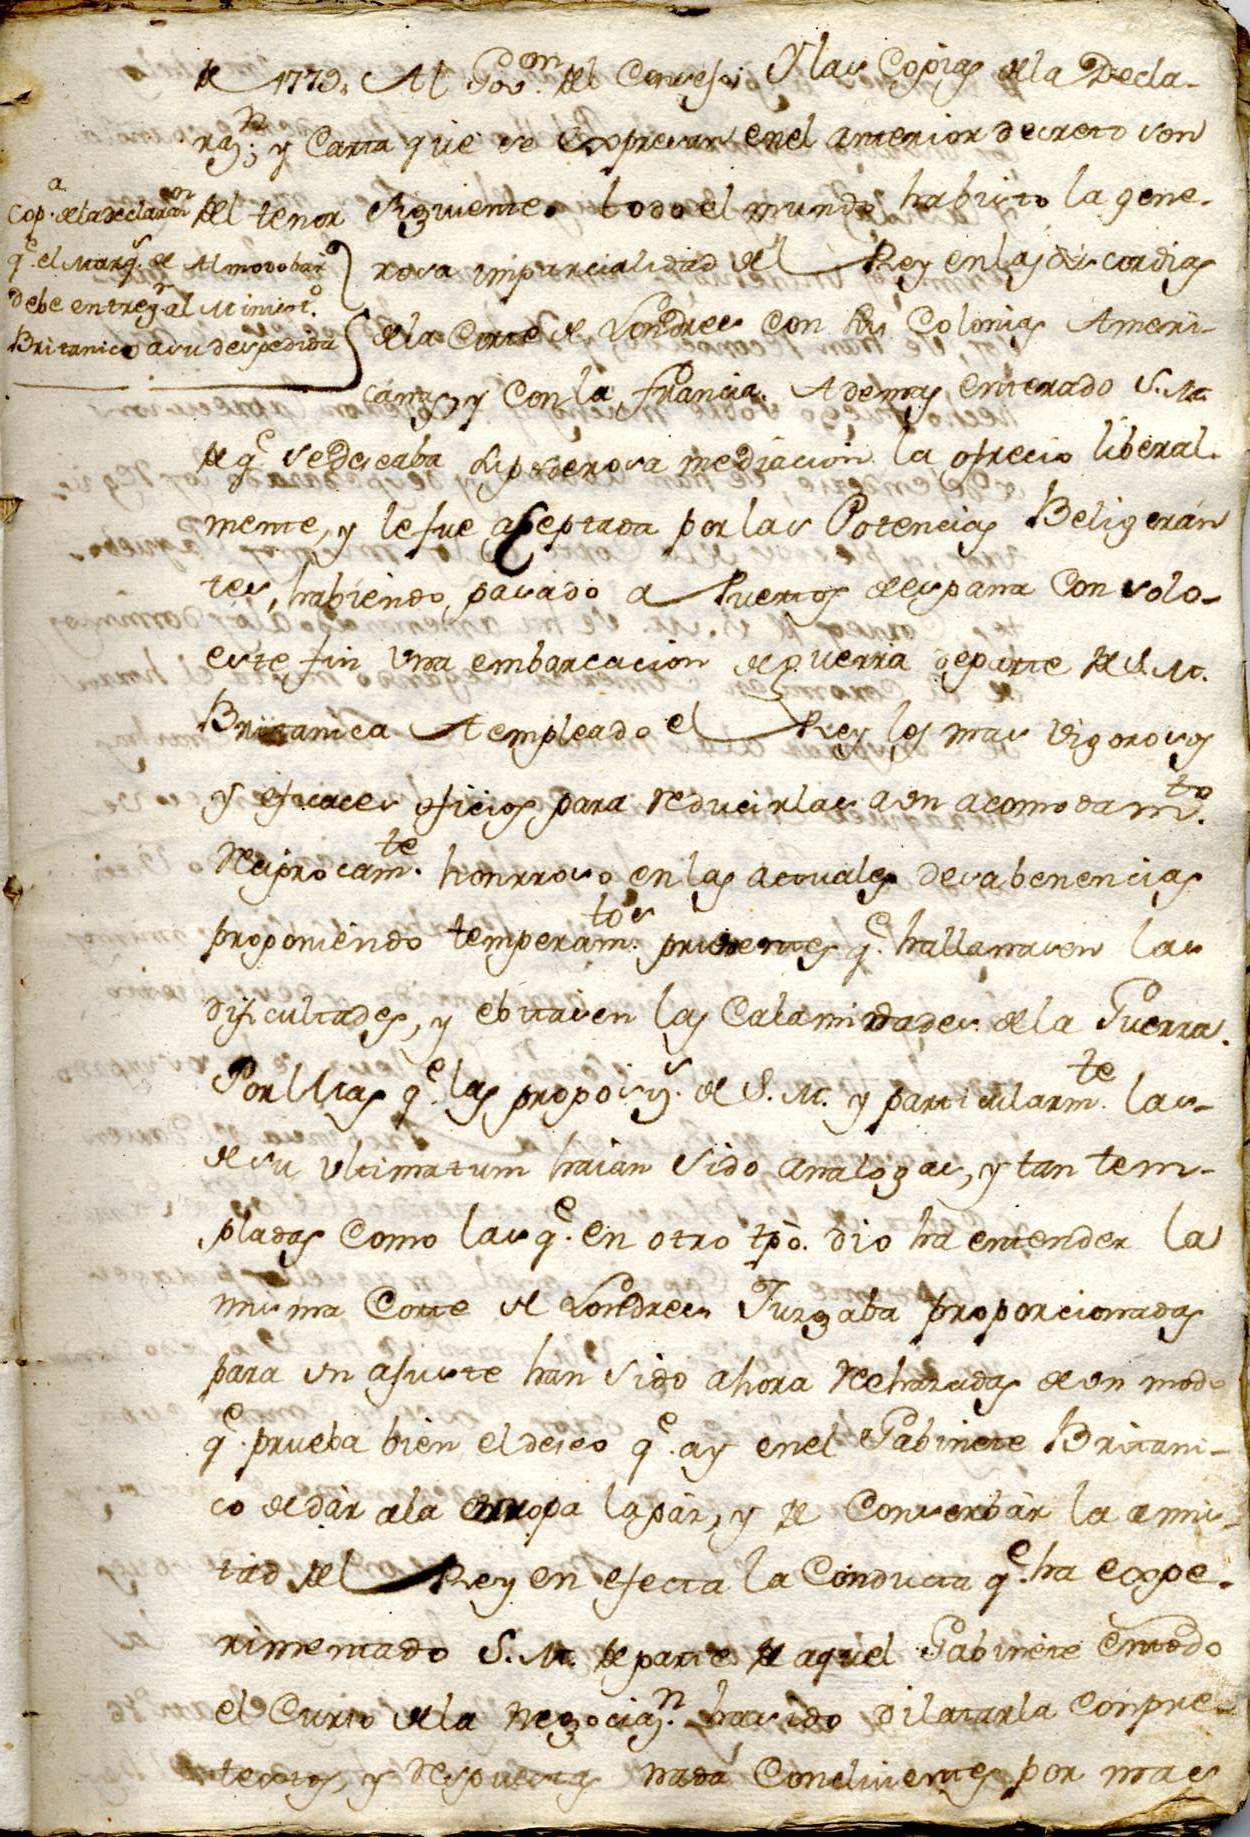 de 1779. Al Gov.on del Consejo Y las Copias dela Decla-
raz.n y Carta que se Expresan enel anterior decreto son
del tenor Siguiente. todo el mundo ha bisto la gene-
rosa imparcialidad del Rey en las discordias
dela Corte de Londres con sus Colonias Ameri-
canas, y Con la francia. Ademas enterado S. M.
de q.e se deseaba su poderosa mediacion la ofrecio liberal-
mente, y le fue aceptada por las Potencias Beligerán
tes, habiendo pasado a Puertos de españa Con solo-
este fin una embarcacion de guerra de parte de S. M.
Britanica A empleado el Rey los mas bigorosos
y eficaces oficios para reducirlas a un acomodam.to
Reciprocam.te honrroso en las actuales desabenencias
proponiendo temperam.tos prudentes q.e hallanasen las
dificultades, y ebitasen las Calamidades dela Guerra.
Por Mas q.e las proposis.s de S. M. y particularm.te las-
de su ultimatum haian sido analogas, y tan tem-
pladas Como las q.e en otro tpo. dio ha entender la
misma Corte de Londres Juzgaba proporcionadas
para un ajuste han sido ahora Rechazadas de un modo
q.e prueba bien el deseo q.e ay enel Gabinete Britani-
co de dár ala Europa la páz, y de Conserbár la amis-
tad del Rey en efecta la Conducta q.e ha expe-
rimentado S. M. de parte de aquel Gabinete en todo
el Curso dela Negociaz.n ha sido dilatarla Con pre-
textos, y Respuestas nada Concluientes por mas
Cop.a dela declaraon
q.e el Marq.s de Almodobar
debe entreg.r al Minist.o
Britanico a su despedida